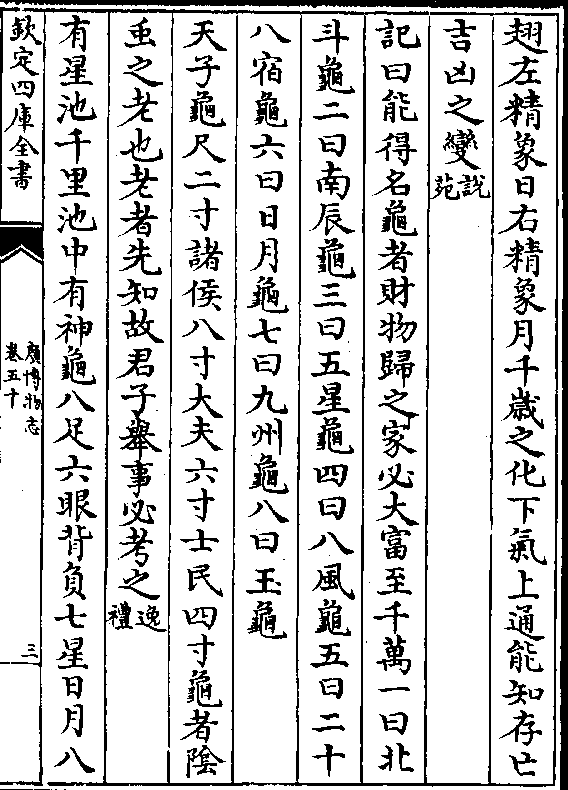 翅左精象日右精象月千歲之化下氣上通能知存亡
吉凶之變說苑
記曰能得名龜者財物歸之家必大富至千萬一曰北
斗龜二曰南辰龜三曰五星龜四曰八風龜五曰二十
八宿龜六曰日月龜七曰九州龜八曰玉龜
天子龜尺二寸諸侯八寸大夫六寸士民四寸龜者陰
䖝之老也老者先知故君子舉事必考之逸禮
有星池千里池中有神龜八足六眼背負七星日月八
欽定四庫全書
廣博物志
卷五十
三